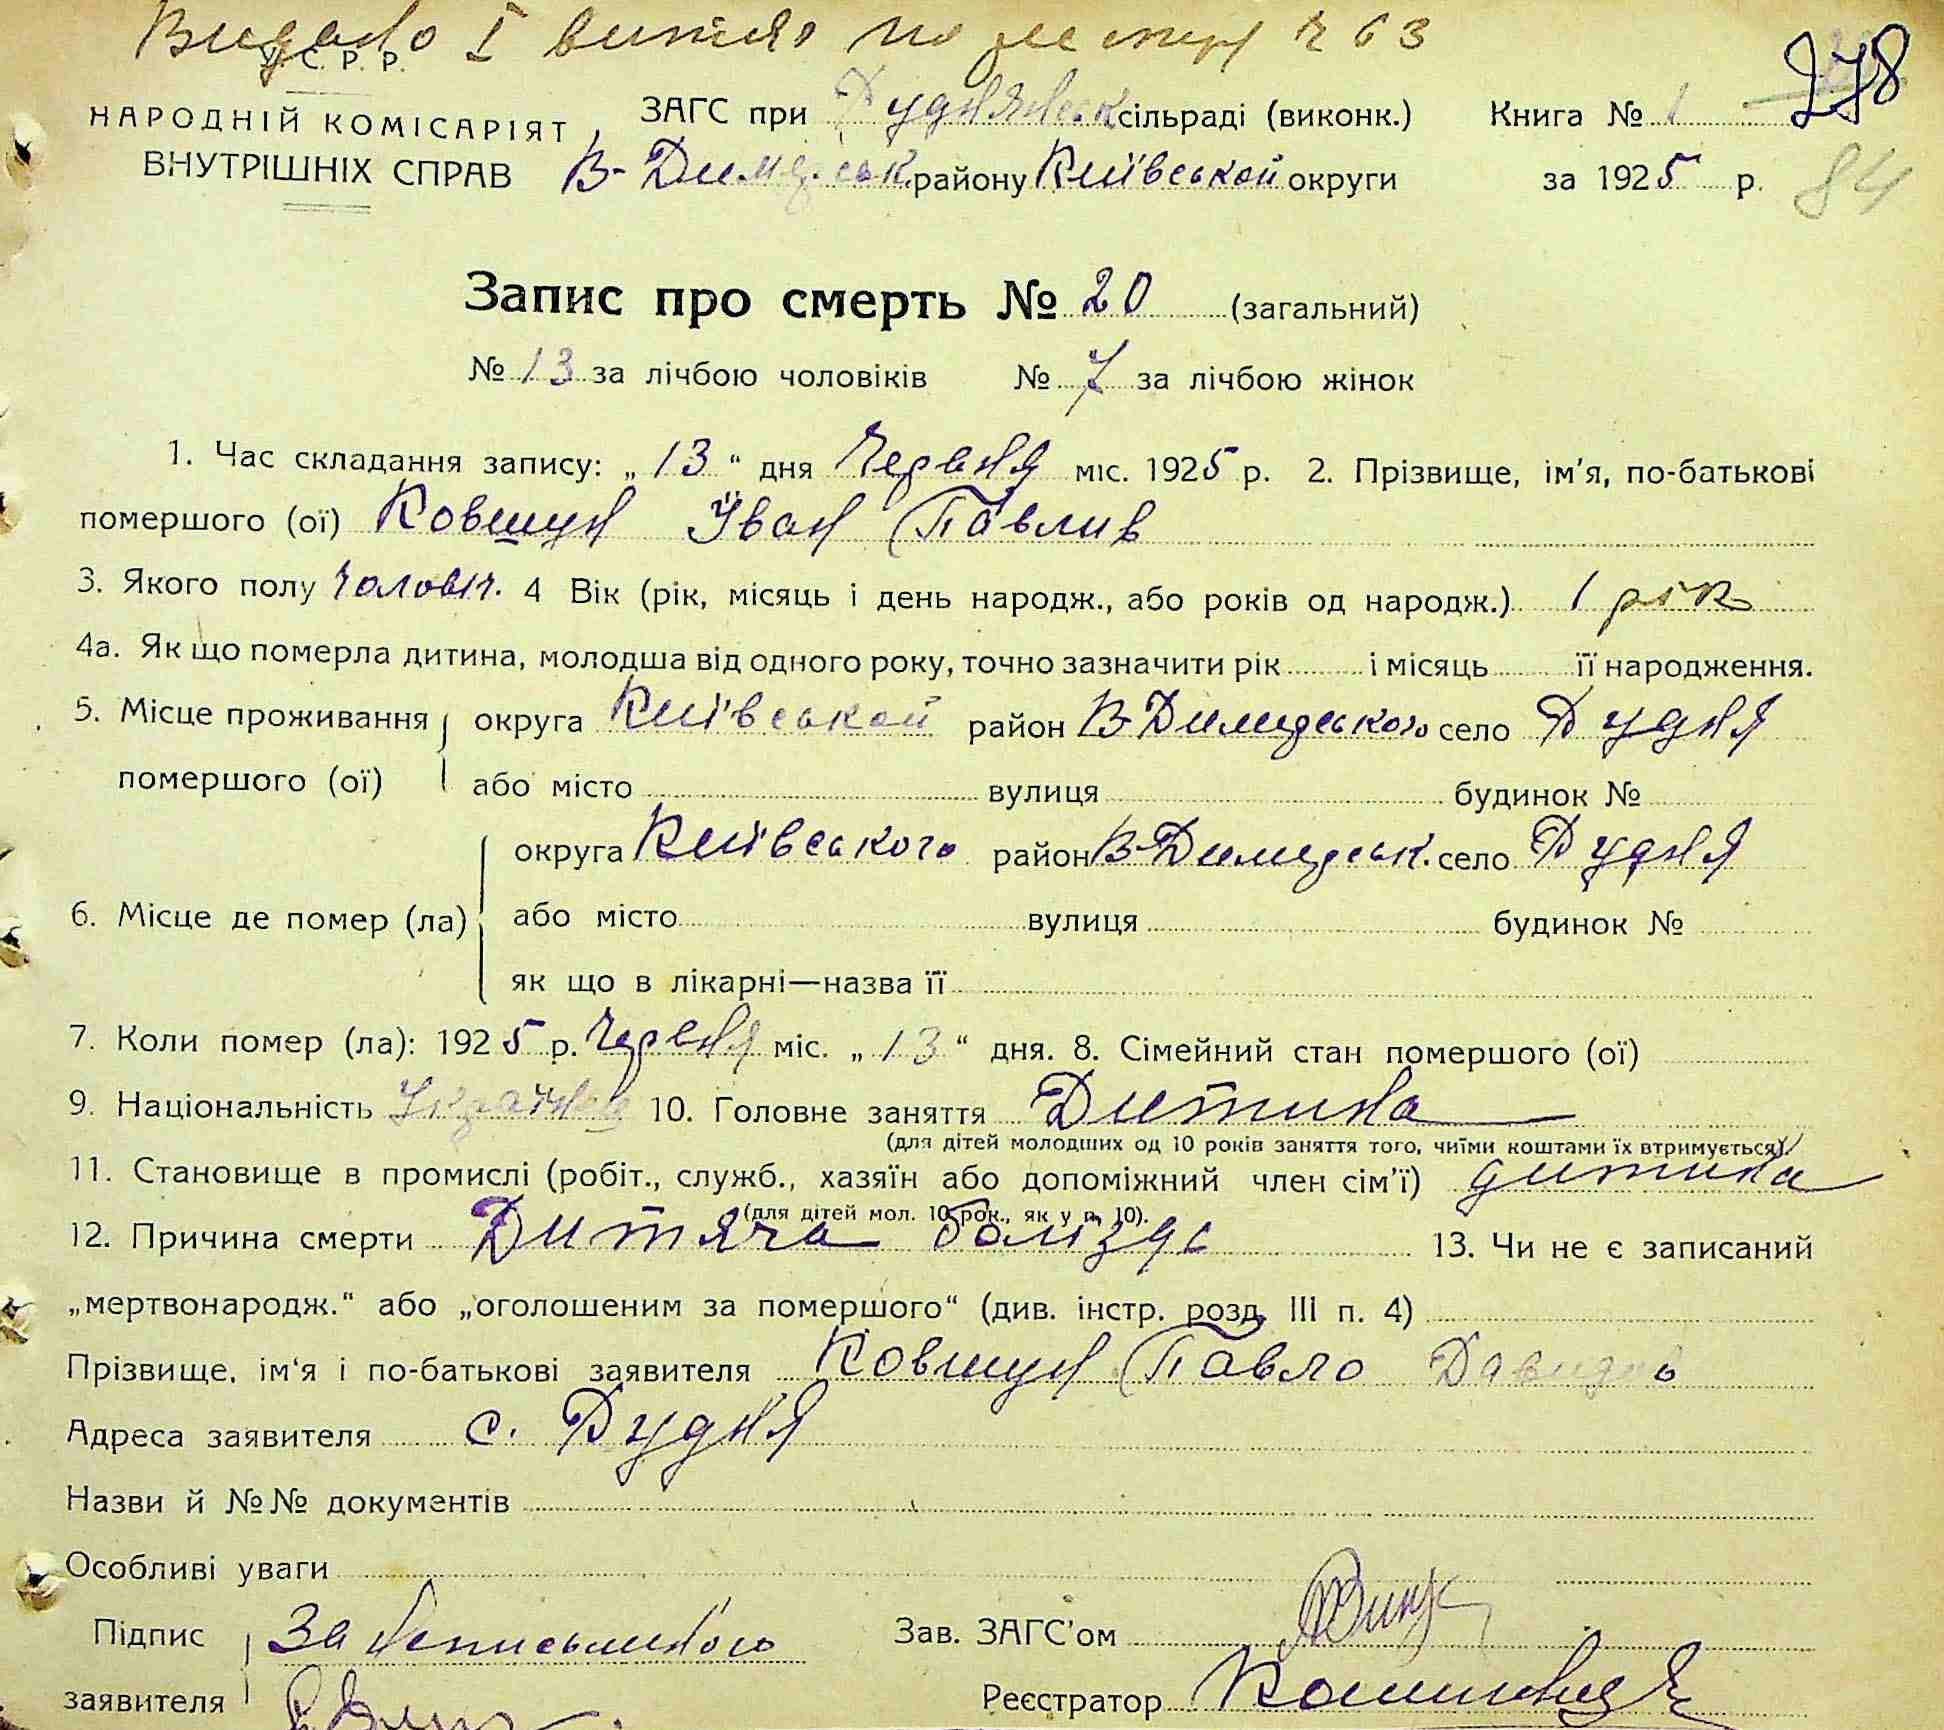 Видано І витяг по реєстру № 63
У. С. Р. Р.
278
НАРОДНІЙ КОМІСАРІЯТ
ВНУТРІШНІХ СПРАВ
ЗАГС при Руднянськ сільраді (виконк.) Книга № 1
В-Димерськ. району Київської округи за 1925 р.
84
Запис про смерть № 20 (загальний)
№ 13 за лічбою чоловіків № 7 за лічбою жінок
1. Час складання запису: „13“ дня Червня міс. 1925 р. 2. Прізвище, ім'я, по-батькові
помершого (ої) Ковшун Іван Павлив
3. Якого полу чоловіч. 4 Вік (рік, місяць і день народж., або років од народж.) 1 рік
4а. Як що померла дитина, молодша від одного року, точно зазначити рік і місяць її народження.
5. Місце проживання помершого (ої) округа Київськой район В-Димерського село Рудня
або місто вулиця будинок №
6. Місце де помер (ла) округа Київського район В-Димерськ. село Рудня
або місто вулиця будинок №
як що в лікарні—назва її
7. Коли помер (ла): 1925 р. Червня міс. „13“ дня. 8. Сімейний стан помершого (ої)
9. Національність 10. Головне заняття Дитина
(для дітей молодших од 10 років заняття того, чиїми коштами їх втримується)
11. Становище в промислі (робіт., служб., хазяїн або допоміжний член сім'ї) дитина
(для дітей мол. 10 рок., як у п. 10).
12. Причина смерти Дитяча 13. Чи не є записаний
„мертвонародж.“ або „оголошеним за помершого“ (див. інстр. розд. III п. 4)
Прізвище, ім'я і по-батькові заявителя Ковшун Павло Давидов
Адреса заявителя с. Рудня
Назви й №№ документів
Особливі уваги
Підпис заявителя За неписьменного
Зав. ЗАГС'ом
Реєстратор